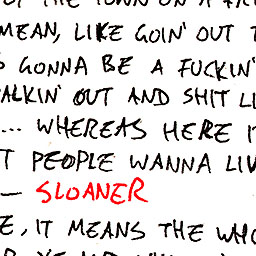 THE TOWN ON A
MEAN, LIKE GOIN' OUT T
GONNA BE A FUCKIN'
ALKIN' OUT AND SHIT LI
... WHEREAS HERE I
T PEOPLE WANNA LIV
— SLOANER
E, IT MEANS THE WHO